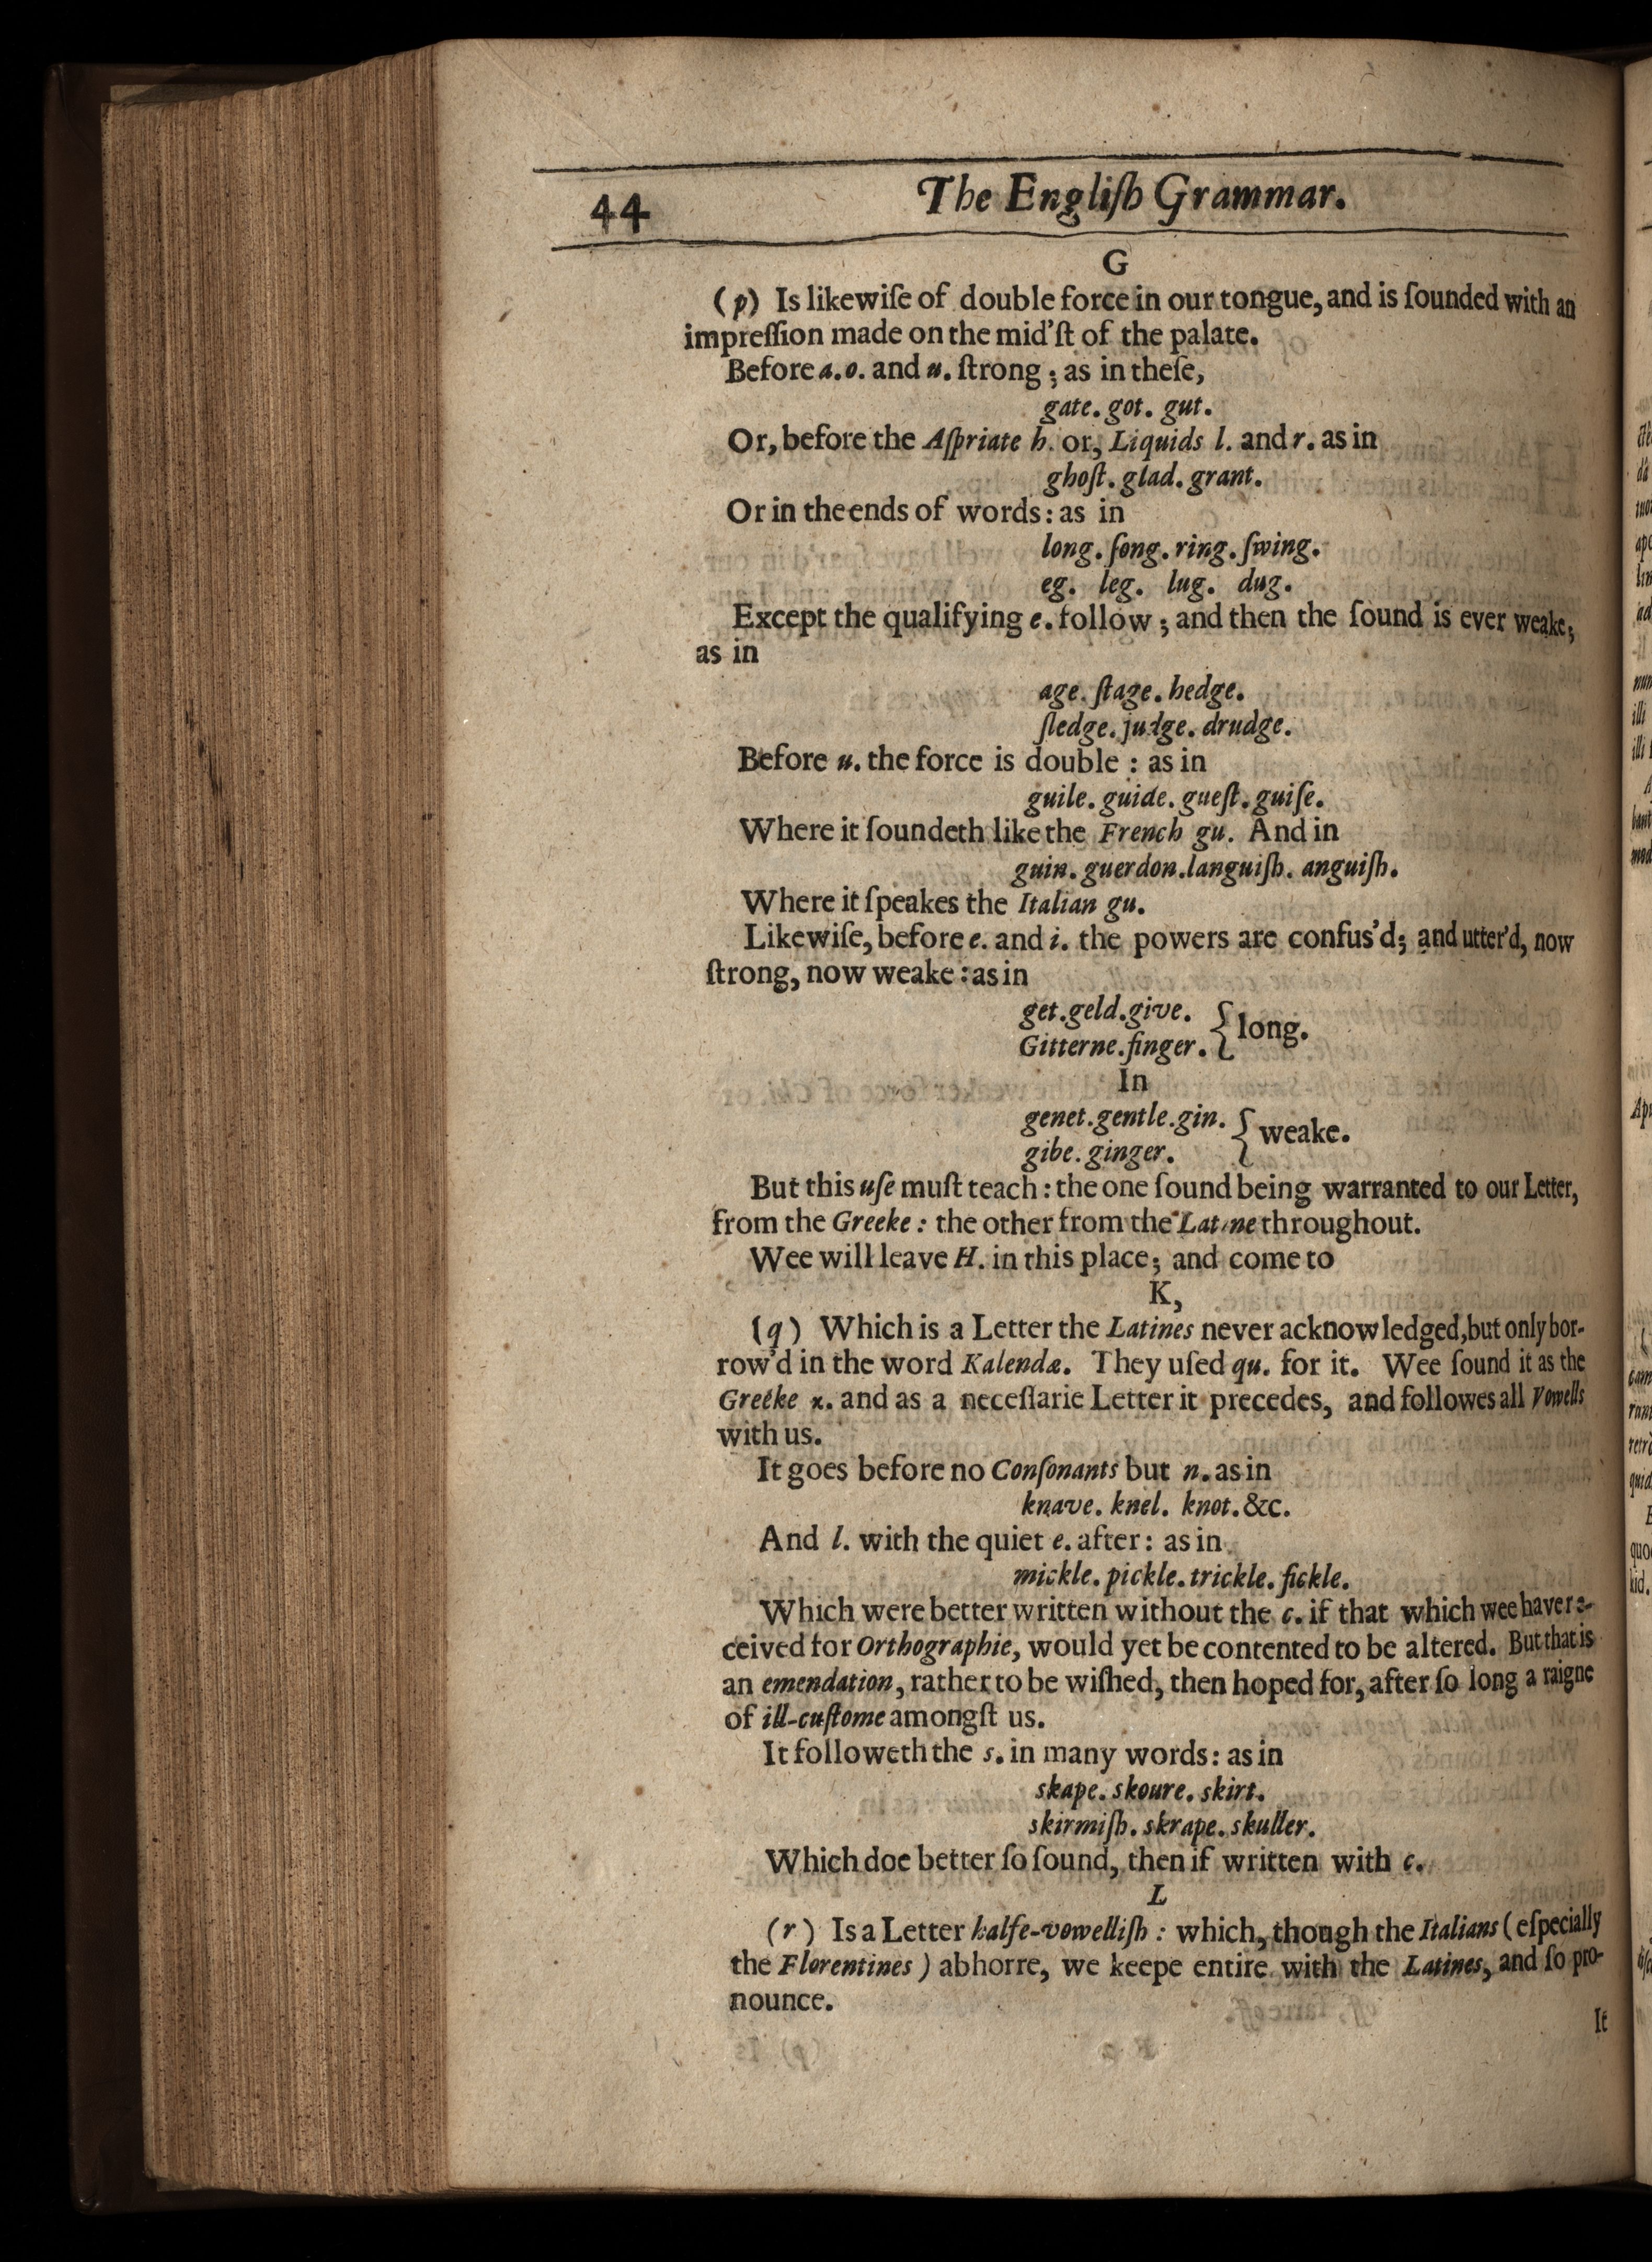 44 The Engliſh Grammar.
G
(p) Is likewiſe of double force in our tongue, and is ſounded with an
impreſſion made on the mid'ſt of the palate.
Before a. o. and u. ſtrong; as in theſe,
gate. got. gut.
Or, before the Aſpriate h. or, Liquids l. and r. as in
ghoſt. glad. grant.
Or in the ends of words: as in
long. ſong. ring. ſwing.
eg. leg. lug. dug.
Except the qualifying e. follow; and then the ſound is ever weake;
as in
age. ſtage. hedge.
ſledge. judge. drudge.
Before u. the force is double : as in
guile. guide. gueſt. guiſe.
Where it ſoundeth like the French gu. And in
guin. guerdon. languiſh. anguiſh.
Where it ſpeakes the Italian gu.
Likewiſe, before e. and i. the powers are confus'd; and utter'd, now
ſtrong, now weake : as in
get. geld. give.
Gitterne. finger. { long.
In
genet. gentle. gin.
gibe. ginger. { weake.
But this uſe muſt teach : the one ſound being warranted to our Letter,
from the Greeke : the other from the Latine throughout.
Wee will leave H. in this place; and come to
K,
(q) Which is a Letter the Latines never acknowledged, but only bor-
row'd in the word Kalendæ. They uſed qu. for it. Wee ſound it as the
Greeke κ. and as a neceſſarie Letter it precedes, and followes all Vowells
with us.
It goes before no Conſonants but n. as in
knave. knel. knot. &c.
And l. with the quiet e. after: as in
mickle. pickle. trickle. fickle.
Which were better written without the c. if that which wee have re-
ceived for Orthographie, would yet be contented to be altered. But that is
an emendation, rather to be wiſhed, then hoped for, after ſo long a raigne
of ill-cuſtome amongſt us.
It followeth the s. in many words: as in
skape. skoure. skirt.
skirmiſh. skrape. skuller.
Which doe better ſo ſound, then if written with c.
L
(r) Is a Letter halfe-vowelliſh : which, though the Italians (eſpecially
the Florentines) abhorre, we keepe entire with the Latines, and ſo pro-
nounce.
It